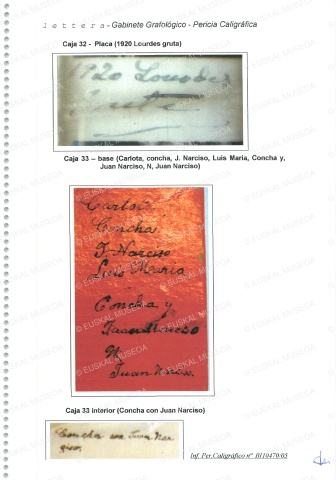 l e t t e r a - Gabinete Grafológico - Pericia Caligráfica
Caja 32 - Placa (1920 Lourdes gruta)
1920 Lourdes
gruta
Caja 33 – base (Carlota, concha, J. Narciso, Luis Maria, Concha y,
Juan Narciso, N, Juan Narciso)
Carlota
Concha
J. Narciso
Luis Maria
Concha y
Juan Narciso
N
Juan Narciso.
Caja 33 interior (Concha con Juan Narciso)
Concha con Juan Nar
ciso.
Inf. Per.Caligráfico nº BI10470/05
© EUSKAL MUSEOA